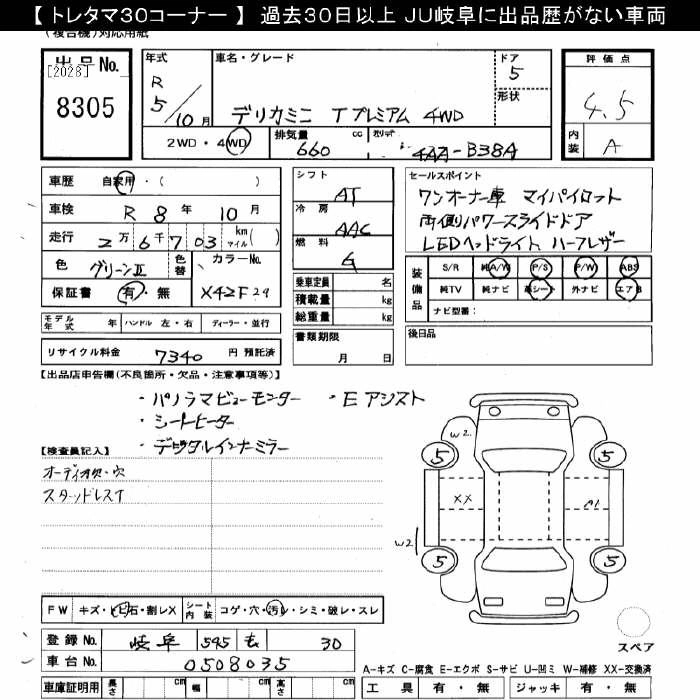 【 トレタマ30コーナー 】 過去30日以上 JU岐阜に出品歴がない車両
(複合機)対応用紙
出品 No.
[2028]
8305
年式
R
5/10月
車名・グレード
デリカミニ Tプレミアム 4WD
ドア
5
形状
2WD・4WD
排気量 cc
660
4AA-B38A
評価点
4.5
内装
A
車歴 自家用・( )
車検 R 8年 10月
走行 2万6千703 km マイル( )
色 グリーンII 色替 カラーNo.
保証書 有・無 X42F 29
シフト
AT
冷房
AAC
燃料
G
乗車定員 名
積載量 kg
総重量 kg
セールスポイント
ワンオーナー車 マイパイロット
両側パワースライドドア
LEDヘッドライト ハーフレザー
装備品
S/R 純A/W P/S P/W ABS
純TV 純ナビ 革シート 外ナビ エアB
ナビ型番:
モデル年式 年 ハンドル 左・右 ディーラー・並行
リサイクル料金 7340 円 預託済
書類期限
月 日
後日品
【出品店申告欄(不良箇所・欠品・注意事項等)】
・パノラマビューモニター ・Eアシスト
・シートヒーター
・デジタルインナーミラー
【検査員記入】
オーディオ欠・穴
スタッドレスT
W2
5
5
XX
A1
W2
5
5
FW キズ・ヒビ・石・割レX シート内装 コゲ・穴・汚レ・シミ・破レ・スレ
登録 No. 岐阜 545 も 30
車台 No. 0508035
スペア
A-キズ C-腐食 E-エクボ S-サビ U-凹ミ W-補修 XX-交換済
車庫証明用 長さ cm 幅 cm 高さ cm
工具 有・無 ジャッキ 有・無